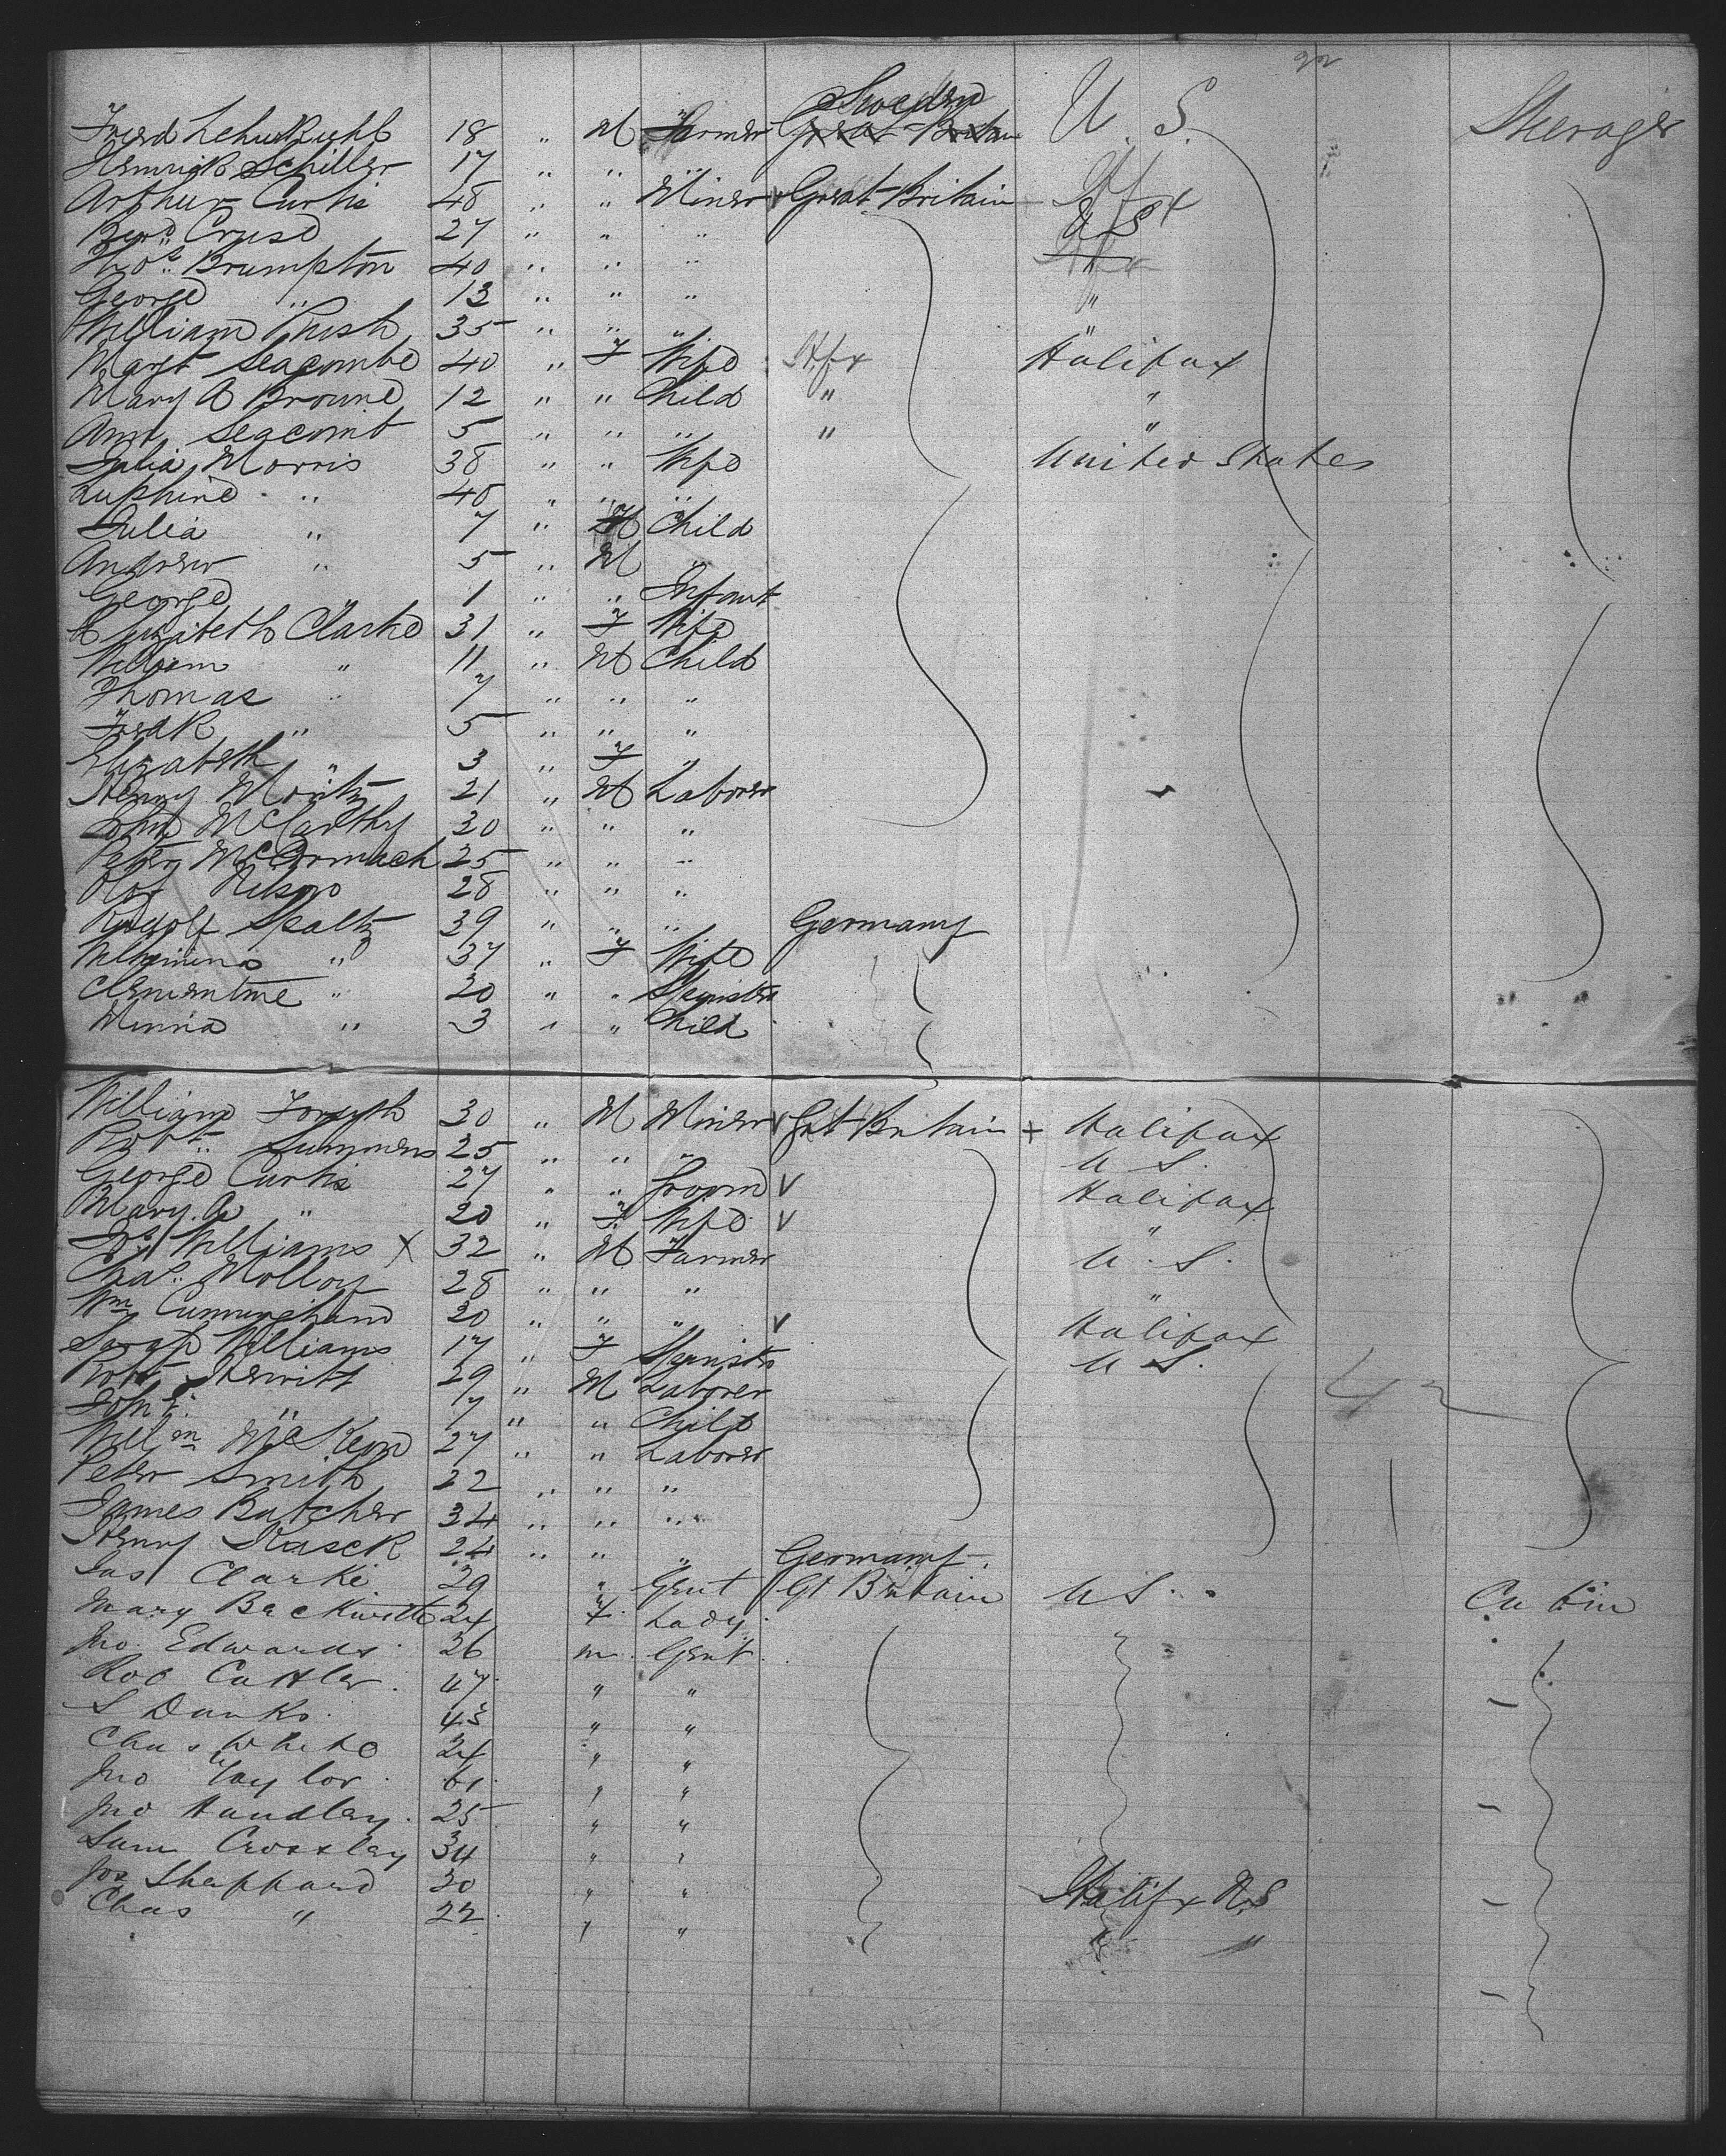 22
Sweden
Fred 18 " M Farmer Great Britain U. S. Steerage
Henrick Schiller 17 " " "
Arthur Curtis 48 " " Miner v Great Britain Hfx
Cruse 27 " " " U S
Thos. Brumpton 40 " " " "
George " 13 " " " "
William Rush 35 " " " "
Margt Seacombe 40 " F Wife Hfx Halifax
Mary A Browne 12 " " Child " "
Seacomb 5 " " " " "
Julia Morris 38 " " Wife United States
" 48 " " "
Julia " 7 " Child
Andrew " 5 " M "
George " 1 " " Infant
Elizabeth Clarke 31 " F Wife
William " 11 " M Child
Thomas " 7 " " "
Fredk " 5 " " "
Elizabeth " 3 " F "
Henry Moritz 21 " M Laborer
John McCarthy 30 " " "
Peter McCormack 25 " " "
Olof 28 " " "
Rudolf Spaltz 39 " " " Germany
Wilhemina " 37 " F Wife
Clementine " 20 " " Spinster
Minna " 3 " " Child
William Forsyth 30 " M Miner v Grt Britain + Halifax
Robt. Summers 25 " " " U S.
George Curtis 27 " " Groom v Halifax
Mary A " 20 " F Wife v "
Williams X 32 " M Farmer U. S.
Chas. Molloy 28 " " " "
Wm Cunningham 20 " " " v Halifax
Sarah Williams 17 " F Spinster U S.
Robt Hewitt 29 " M Laborer 42
John " 7 " " Child
Willm 27 " " Laborer
Peter Smith 22 " " "
James Butcher 34 " " "
Henry 24 " " " Germany.
Jas Clarke 29 " Gent Gt Britain U S. Cabin
Mary Beckwith 24 F. Lady.
Jno. Edwards. 26 m. Gent.
Rob Cuttler. 47 " "
S Danks. 43 " "
Chas White 24 " "
Jno Taylor. 61 " "
Jno Handley. 25 " "
Sam Crossley 34 " "
Jos Sheppard 30 " " Halifx N.S
Chas " 22 " " " "